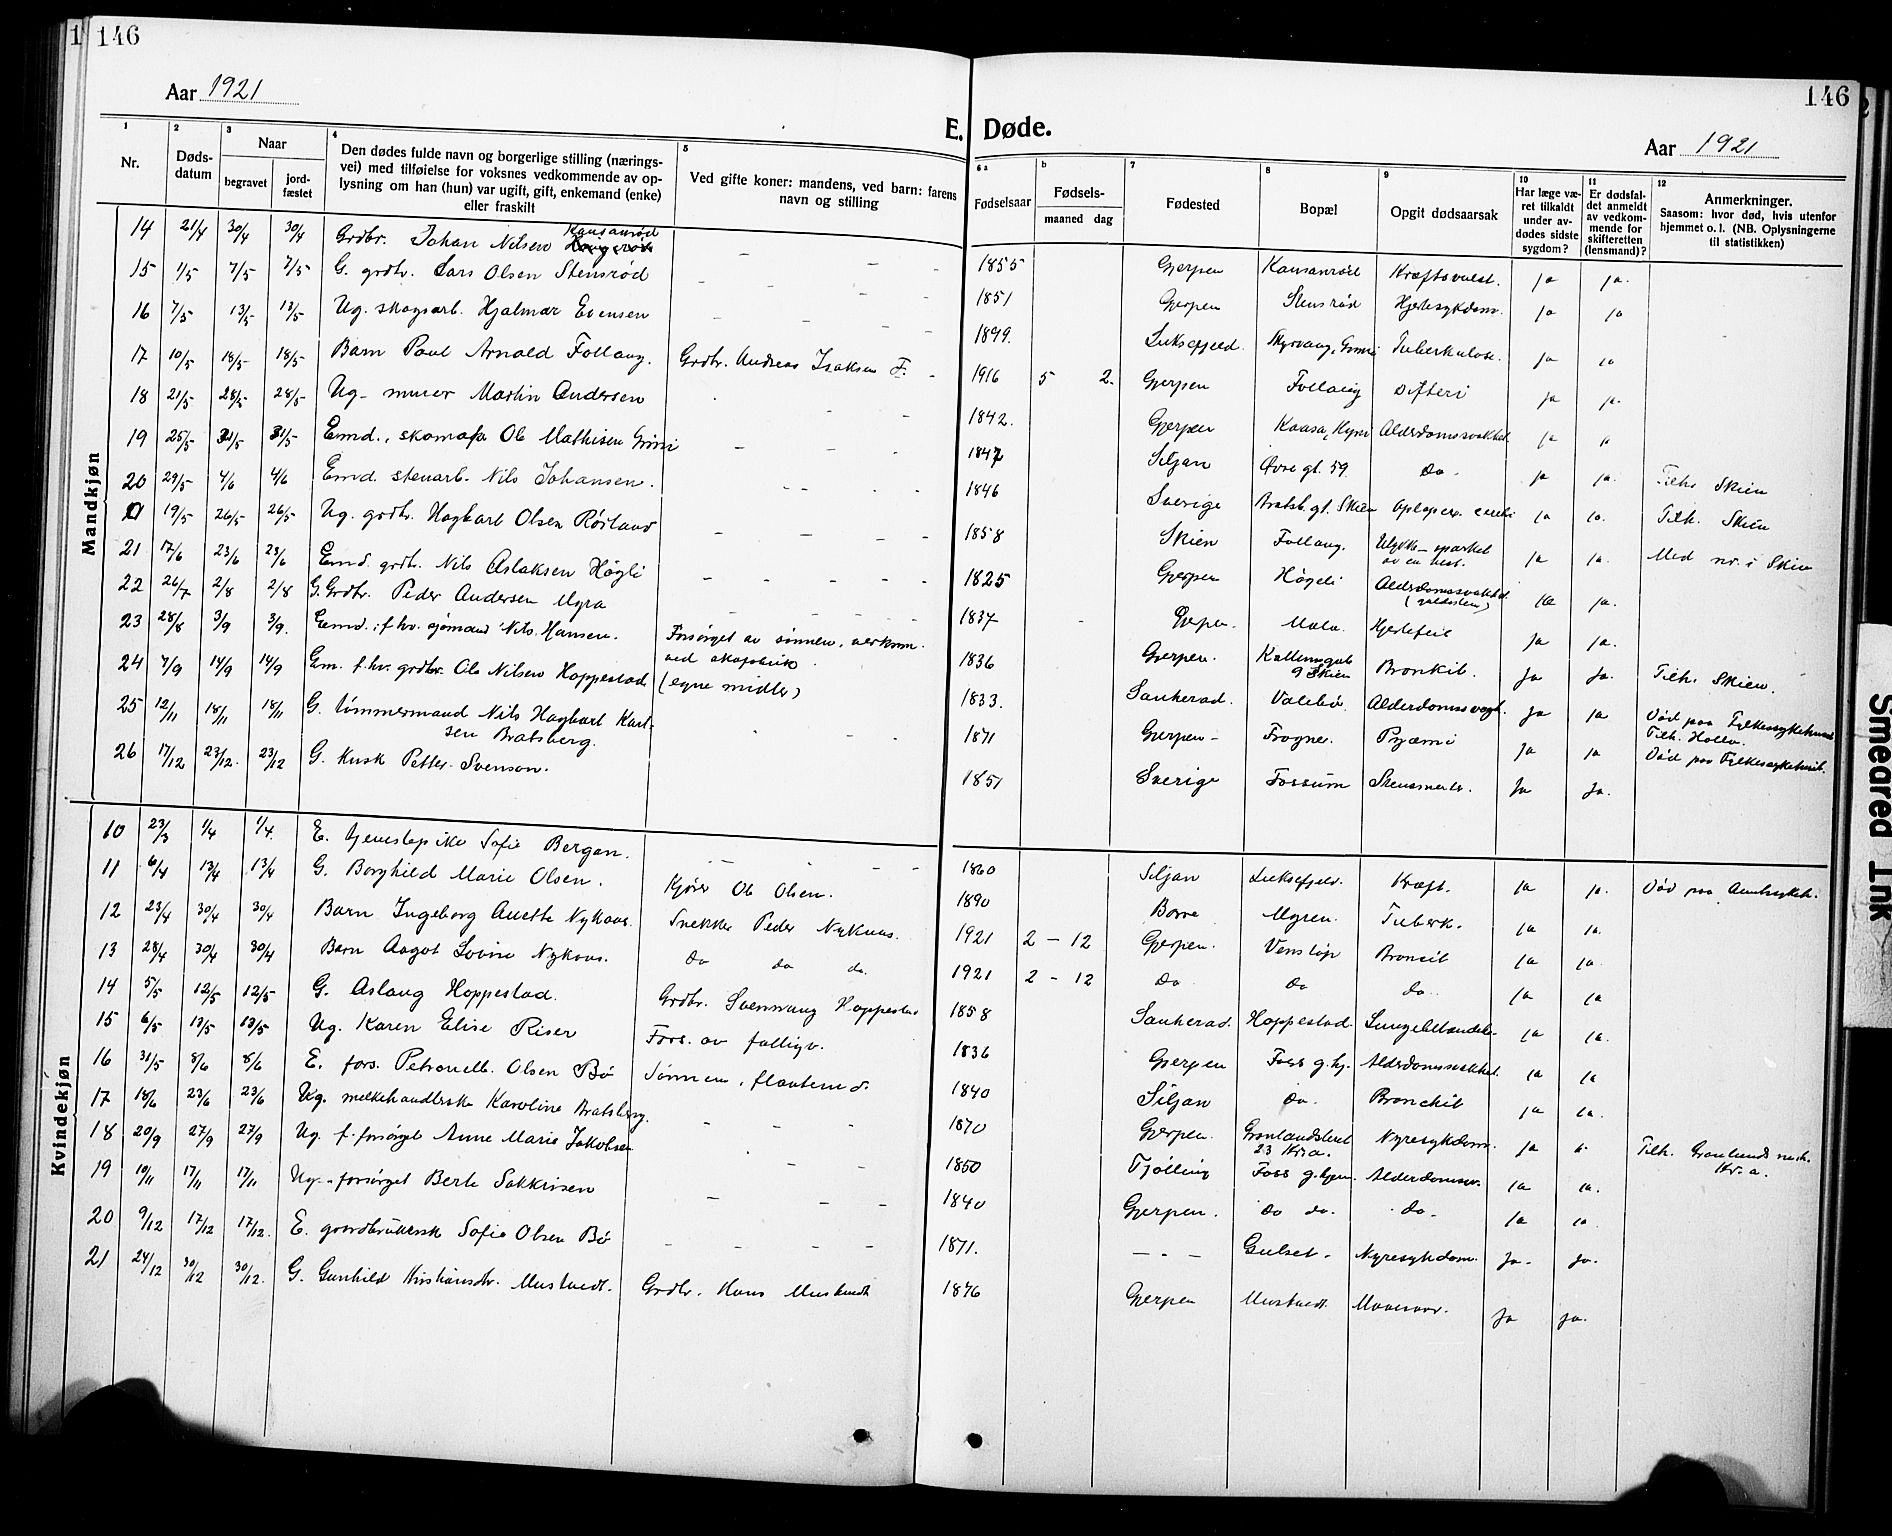 146
Aar 1921
E. Døde.
146
Aar 1921
1 2 3 4 5 6 a b 7 8 9 10 11 12
Nr.
Døds-
datum
Naar
begravet
jord-
fæstet
Den dødes fulde navn og borgerlige stilling (nærings-
vei) med tilføielse for voksnes vedkommende av op-
lysning om han (hun) var ugift, gift, enkemand (enke)
eller fraskilt
Ved gifte koner: mandens, ved barn: farens
navn og stilling
Fødselsaar
Fødsels-
maaned dag
Fødested
Bopæl
Opgit dødsaarsak
Har læge væ-
ret tilkaldt
under av-
dødes sidste
sygdom?
Er dødsfal-
det anmeldt
av vedkom-
mende for
skifteretten
(lensmand)?
Anmerkninger.
Saasom: hvor død, hvis utenfor
hjemmet o. l. (NB. Oplysningerne
til statistikken)
Mandkjøn
14 21/4 30/4 30/4 Grdbr. Johan Nilsen Kausanrød - - - 1855 Gjerpen Kausanrød Kræftsvulst. ja ja.
15 1/5 7/5 7/5 G. grdbr. Lars Olsen Stensrød - - - 1851 Gjerpen Stensrød Hjertesykdom. ja ja
16 7/5 13/5 13/5 Ug. skogsarb. Hjalmar Evensen - - - 1899. Luksefjeld. Tuberkulose. ja ja
17 10/5 18/5 18/5 Barn Paul Arnold Follaug. Grdbr. Andreas Isaksen F. 1916 5 2. Gjerpen Follaug Difteri ja ja.
18 21/5 28/5 28/5 Ug. murer Martin Andersen - - 1842. Gjerpen Kaasa, Alderdomssvakhet ja ja
19 25/5 31/5 31/5 Emd., skomak. Ole Mathisen Grini - - - 1847 Siljan Øvre gt. 59 do. ja ja. Tilh. Skien
20 29/5 4/6 4/6 Emd. stenarb. Nils Johansen. - - - 1846 Sverige Bratsb. gt. Skien ja ja. Tilh. Skien
19/5 26/5 26/5 Ug. grdbr. Hagbart Olsen - - - 1858 Skien Follaug. Ulykke - sparket
av en hest. ja ja. Med nr. i Skien
21 17/6 23/6 23/6 Emd. grdbr. Nils Aslaksen Høgli - - - 1825 Gjerpen Høgli Alderdomssvakhet ja ja.
22 26/7 2/8 2/8 G. Grdbr. Peder Andersen Myra - - - 1837 Gjerpen. Hjertefeil ja ja.
23 28/8 3/9 3/9. Emd. f. hv. sjømand Nils Hansen. Forsørget av sønnen, verksm.
1836 Gjerpen. Skien Bronkit. ja ja. Tilh. Skien.
24 7/9 14/9 14/9 Em. f. hv. grdbr. Ole Nilsen Hoppestad (egne midler) 1833. Sauherad. Valebø. Alderdomssvagh. ja ja Død paa Fylkessykehuset
Tilh. Holla.
25 12/11 18/11 18/11 G. tømmermand Nils Hagbart Karl-
sen Bratsberg. - - - 1871 Gjerpen - Frogner. Pyæmi ja ja Død paa Fylkessykehus.
26 17/12 23/12. 23/12 G. Kusk Petter Svenson. 1851 Sverige Fossum ja ja.
Kvindekjøn
10 23/3 1/4 1/4. E. tjenestepike Sofie Bergan. - - - 1860 Siljan Luksefjeld. Kræft. ja ja. Død paa Amtssykeh.
11 6/4 13/4 13/4 G. Borghild Marie Olsen. Kjører Ole Olsen. 1890 Borre Myren. Tuberk. ja ja.
12 23/4 30/4 30/4 Barn Ingeborg Anette Nykaas. Snekker Peder Nykaas. 1921 2 - 12 Gjerpen. Venstøp Bronkit ja ja.
13 28/4 30/4 30/4 Barn Aagot Lovise Nykaas. do do do. 1921 2 - 12 do do do. ja ja
14 5/5 12/5 12/5 G. Aslaug Hoppestad. Grdbr. Svennung Hoppestad 1858 Sauherad. Hoppestad. Lungebetændelse ja ja.
15 6/5 13/5 13/5 Ug. Karen Elise Riser Fors. av fattigv. 1836 Gjerpen Foss g.hj. Alderdomssvakhet. ja ja
16 31/5 8/6 8/6 E. fors. Petronelle Olsen Bø Sønnen, fløtermd. 1840 Siljan do. Bronchit ja ja.
17 18/6 23/6 23/6 Ug. melkehandlerske Karoline Bratsberg. - - - 1870 Gjerpen. Grønlandsleret
23 Kr.a. Nyresykdom. ja ja. Tilh. Grønlands menh.
Kr.a.
18 20/9 27/9 27/9 Ug. f. forsørget Anne Marie Jakobsen - - - 1850 Tjølling Foss g.hjem. Alderdomssv. ja ja.
19 10/11 17/11 17/11 Ug. forsørget Berte Sakkrisen - - - 1840 Gjerpen. do do. do. ja ja.
20 9/12 17/12 17/12. E. gaardbrukersk. Sofie Olsen Bø - - - 1871. - - - Gulset. Nyresykdom. ja. ja.
21 24/12 30/12 30/12. G. Gunhild Kristiansdtr. Mustvedt. Grdbr. Hans Mustvedt 1876 Gjerpen Mustvedt. Mavesaar. ja ja.
Smeared Ink